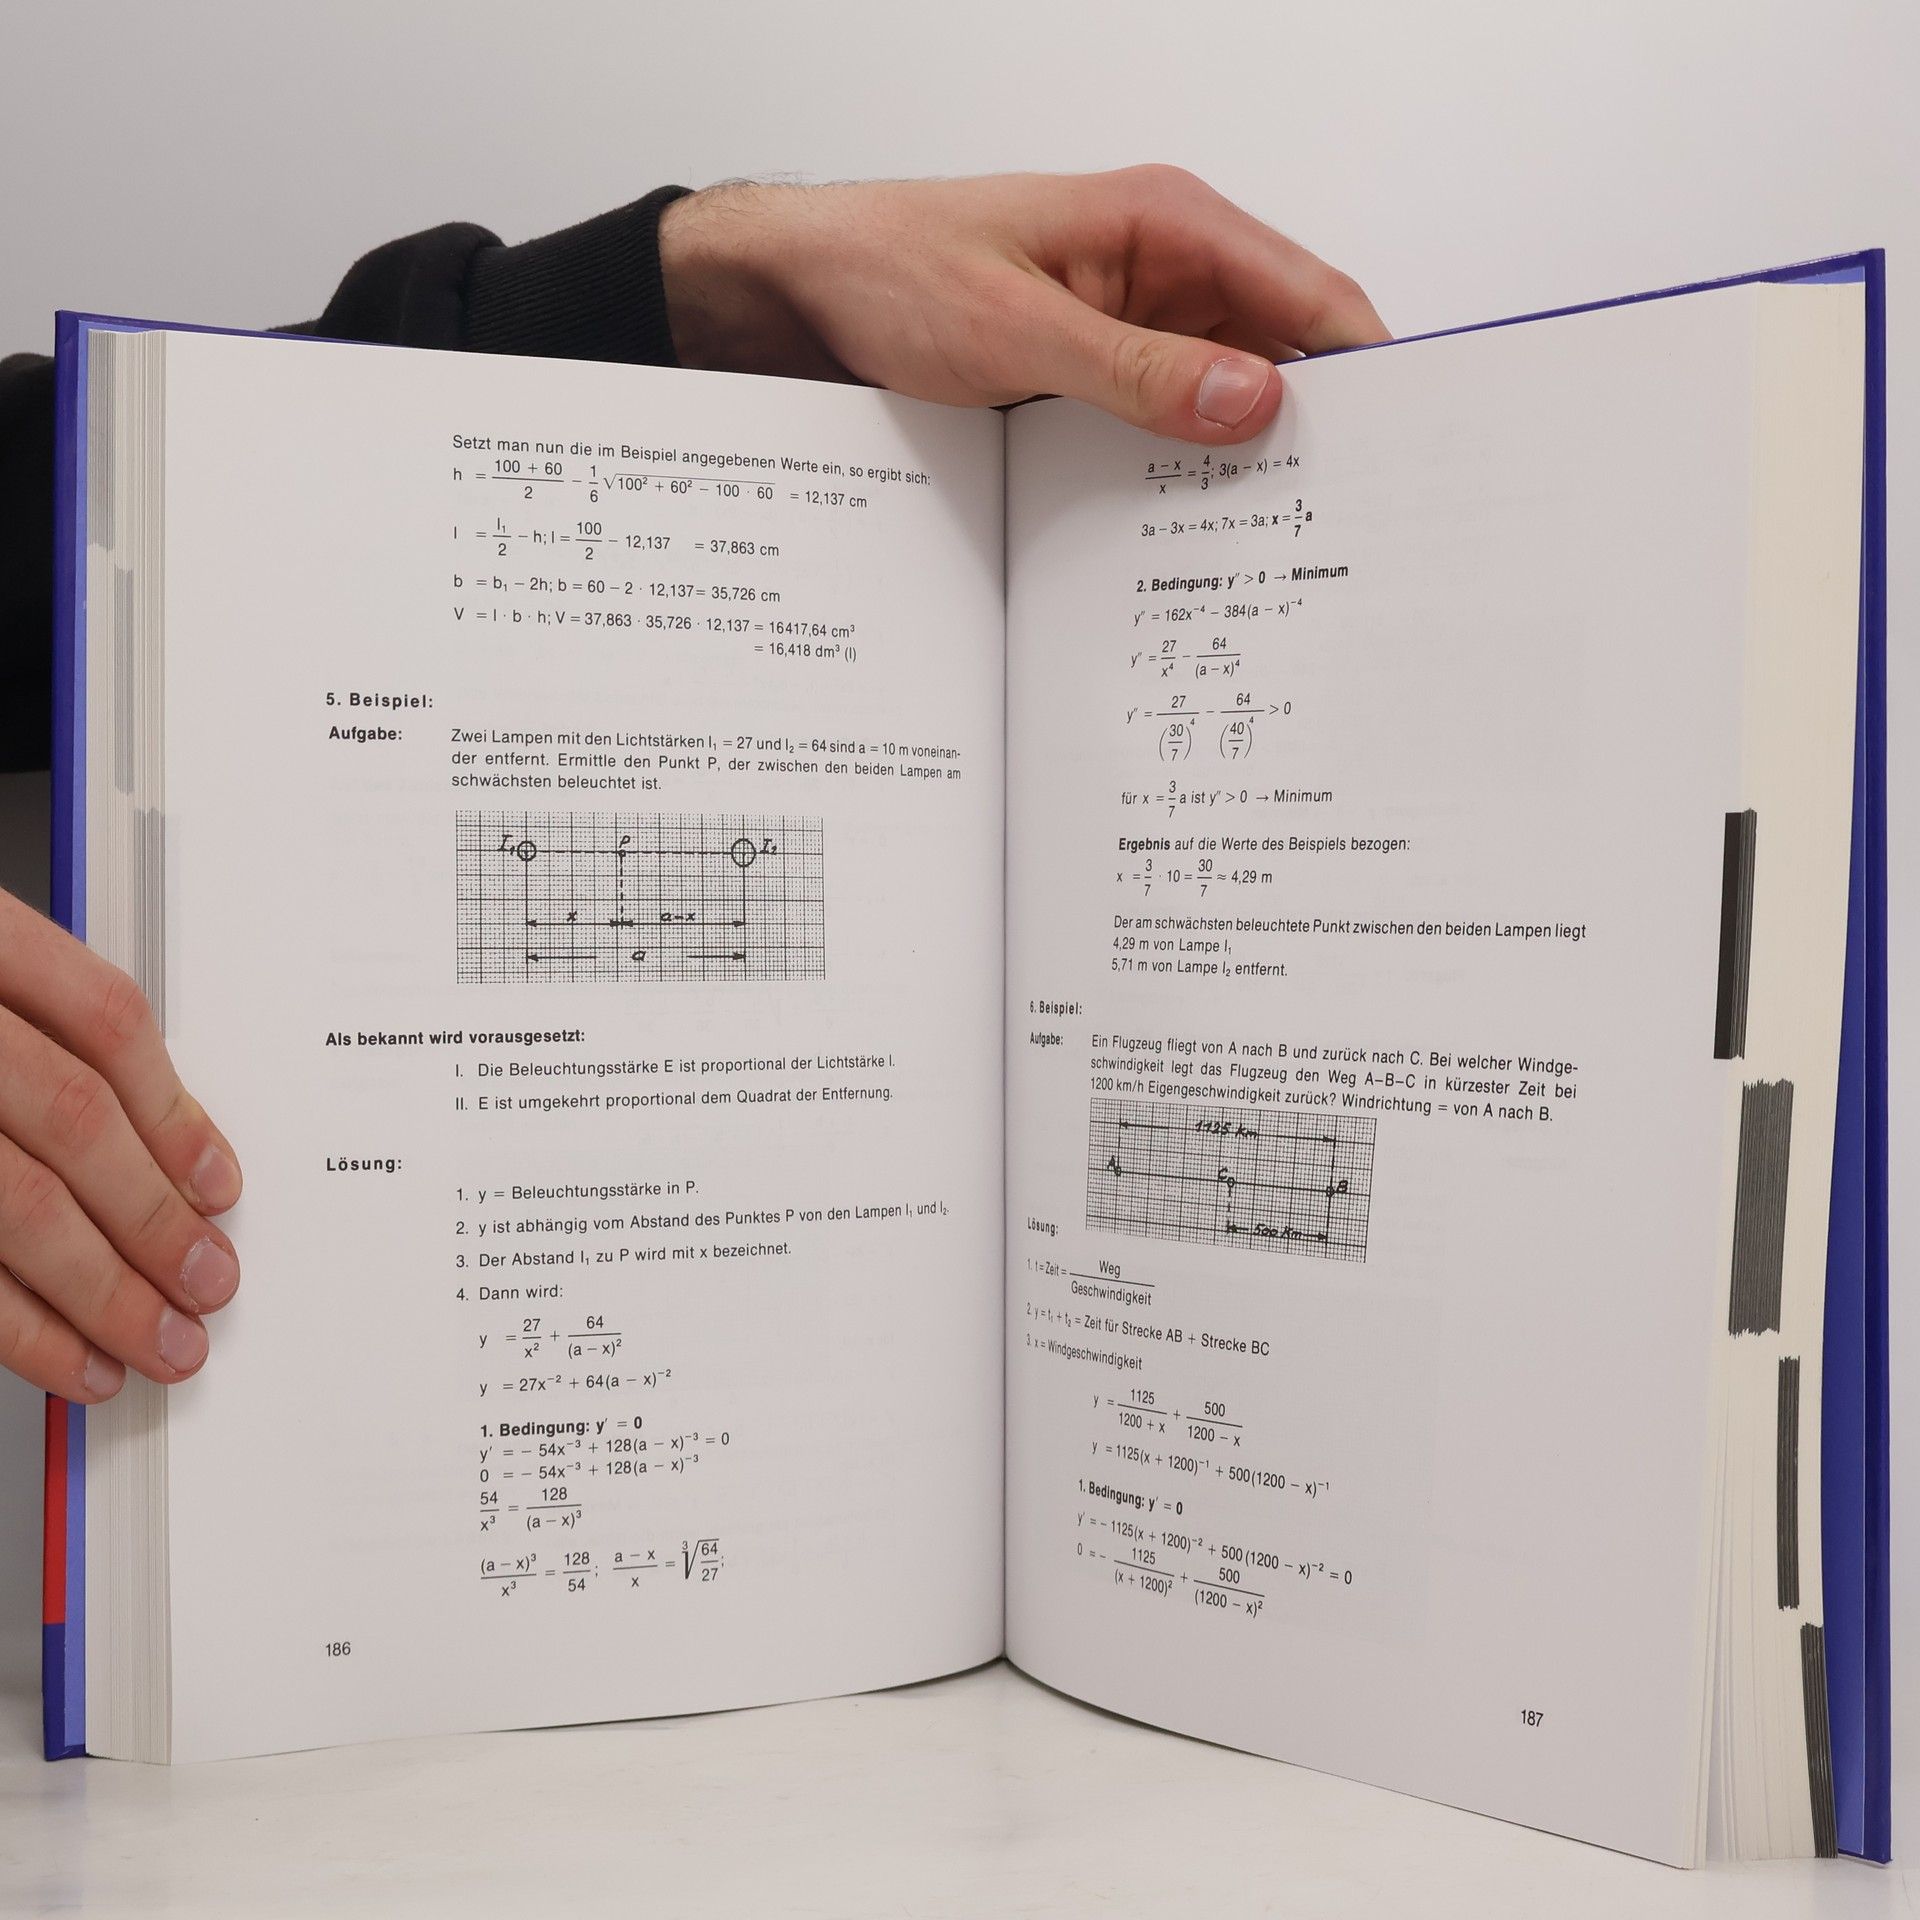 Setzt man nun die im Beispiel angegebenen Werte ein, so ergibt sich:
h = (100 + 60)/2 − 1/6 √(100² + 60² − 100 · 60) = 12,137 cm
l = l₁/2 − h; l = 100/2 − 12,137 = 37,863 cm
b = b₁ − 2h; b = 60 − 2 · 12,137 = 35,726 cm
V = l · b · h; V = 37,863 · 35,726 · 12,137 = 16417,64 cm³
= 16,418 dm³ (l)
5. Beispiel:
Aufgabe: Zwei Lampen mit den Lichtstärken I₁ = 27 und I₂ = 64 sind a = 10 m voneinan-
der entfernt. Ermittle den Punkt P, der zwischen den beiden Lampen am
schwächsten beleuchtet ist.
I₁ P I₂
x a−x
a
Als bekannt wird vorausgesetzt:
I. Die Beleuchtungsstärke E ist proportional der Lichtstärke I.
II. E ist umgekehrt proportional dem Quadrat der Entfernung.
Lösung:
1. y = Beleuchtungsstärke in P.
2. y ist abhängig vom Abstand des Punktes P von den Lampen I₁ und I₂.
3. Der Abstand I₁ zu P wird mit x bezeichnet.
4. Dann wird:
y = 27/x² + 64/(a − x)²
y = 27x⁻² + 64(a − x)⁻²
1. Bedingung: y′ = 0
y′ = − 54x⁻³ + 128(a − x)⁻³ = 0
0 = − 54x⁻³ + 128(a − x)⁻³
54/x³ = 128/(a − x)³
(a − x)³/x³ = 128/54; (a − x)/x = ³√(64/27);
186
(a − x)/x = 4/3; 3(a − x) = 4x
3a − 3x = 4x; 7x = 3a; x = 3/7 a
2. Bedingung: y″ > 0 → Minimum
y″ = 162x⁻⁴ − 384(a − x)⁻⁴
y″ = 27/x⁴ − 64/(a − x)⁴
y″ = 27/(30/7)⁴ − 64/(40/7)⁴ > 0
für x = 3/7 a ist y″ > 0 → Minimum
Ergebnis auf die Werte des Beispiels bezogen:
x = 3/7 · 10 = 30/7 ≈ 4,29 m
Der am schwächsten beleuchtete Punkt zwischen den beiden Lampen liegt
4,29 m von Lampe I₁
5,71 m von Lampe I₂ entfernt.
6. Beispiel:
Aufgabe: Ein Flugzeug fliegt von A nach B und zurück nach C. Bei welcher Windge-
schwindigkeit legt das Flugzeug den Weg A–B–C in kürzester Zeit bei
1200 km/h Eigengeschwindigkeit zurück? Windrichtung = von A nach B.
1125 km
A C B
500 km
Lösung:
1. t = Zeit = Weg/Geschwindigkeit
2. y = t₁ + t₂ = Zeit für Strecke AB + Strecke BC
3. x = Windgeschwindigkeit
y = 1125/(1200 + x) + 500/(1200 − x)
y = 1125(x + 1200)⁻¹ + 500(1200 − x)⁻¹
1. Bedingung: y′ = 0
y′ = − 1125(x + 1200)⁻² + 500(1200 − x)⁻² = 0
0 = − 1125/(x + 1200)² + 500/(1200 − x)²
187